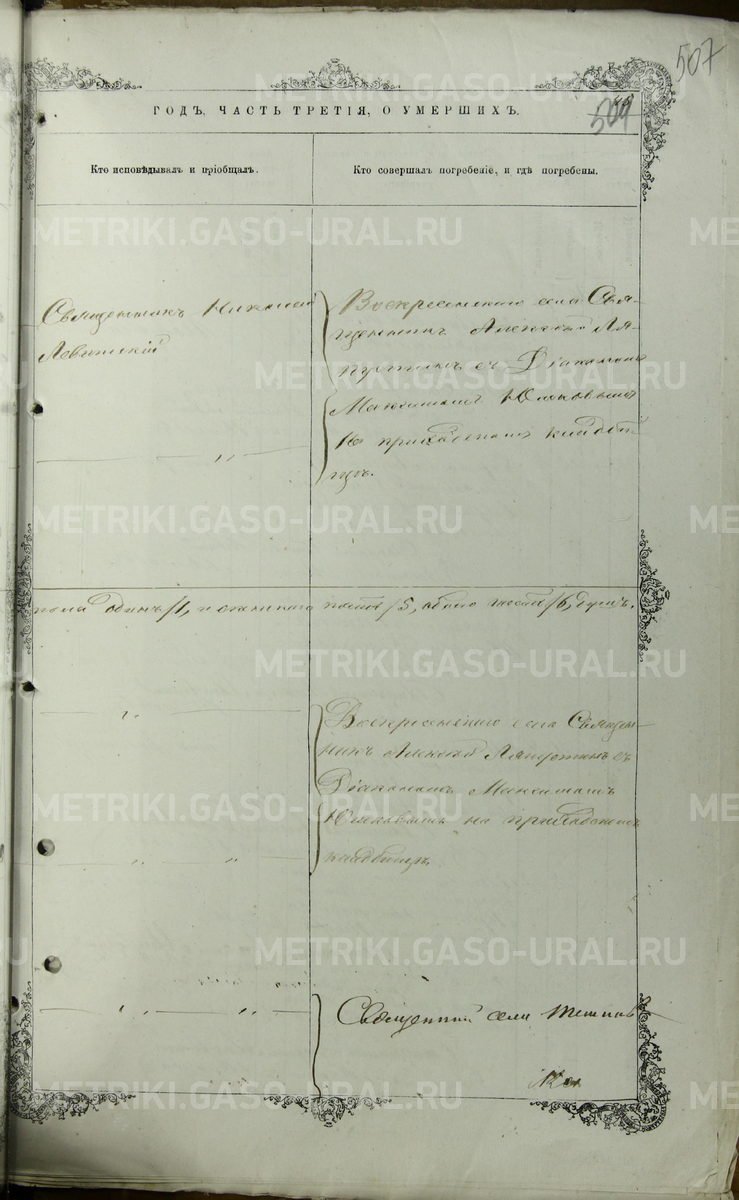 507
509
ГОДЪ, ЧАСТЬ ТРЕТІЯ, О УМЕРШИХЪ.
Кто исповѣдывалъ и пріобщалъ.
Кто совершалъ погребеніе, и гдѣ погребены.
Священникъ Николай
Левитскій
Воскресенскаго села Свя-
щенникъ Алексѣй Ля-
пустинъ съ Діакономъ
Максимомъ
на приходскомъ кладби-
щѣ.
— „ —
пола одинъ /1, и женскаго пять /5, обоего шесть /6, душъ.
„
Воскресенскаго села Священ-
никъ Алексѣй Ляпустинъ съ
Діакономъ Максимомъ
на приходскомъ
кладбищѣ
„ „
„ „ „
Священникъ села
METRIKI.GASO-URAL.RU